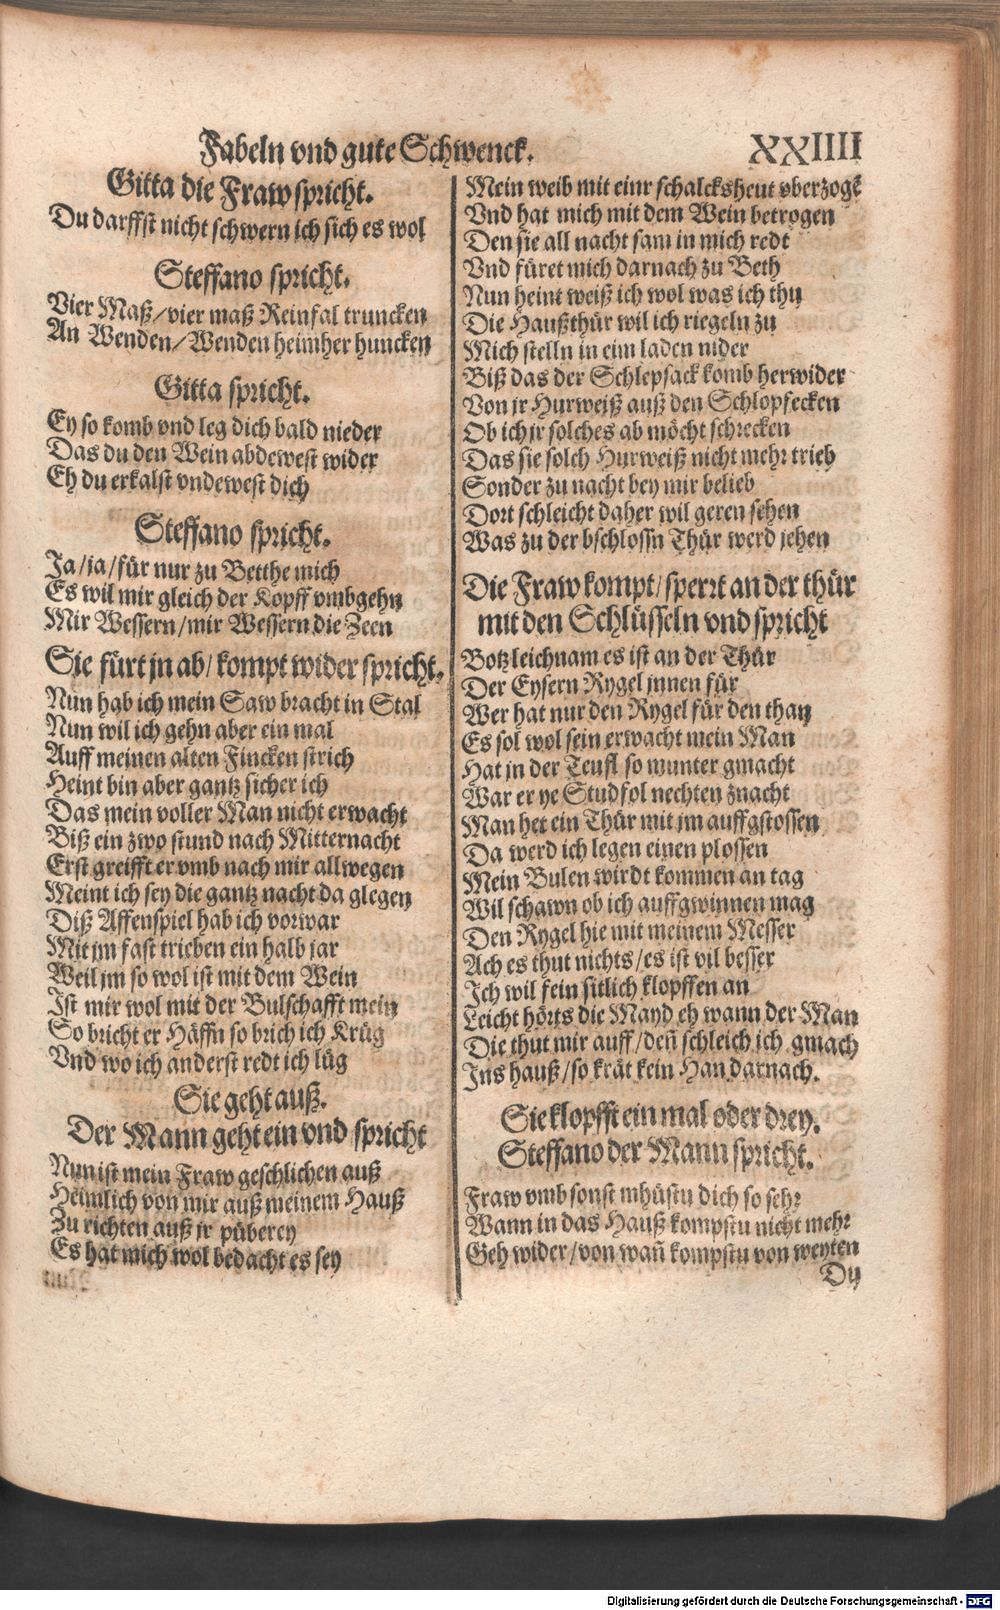 Fabeln vnd gute Schwenck.
XXIIII
Gitta die Fraw spricht.
Du darffst nicht schwern ich sich es wol
Steffano spricht.
Vier Maß/vier maß Reinfal truncken
An Wenden/Wenden heimher huncken
Gitta spricht.
Ey so komb vnd leg dich bald nieder
Das du den Wein abdewest wider
Eh du erkalst vndewest dich
Steffano spricht.
Ja/ja/für nur zu Betthe mich
Es wil mir gleich der Kopff vmbgehn
Mir Wessern/mir Wessern die Zeen
Sie fürt jn ab/kompt wider spricht.
Nun hab ich mein Saw bracht in Stal
Nun wil ich gehn aber ein mal
Auff meinen alten Fincken strich
Heint bin aber gantz sicher ich
Das mein voller Man nicht erwacht
Biß ein zwo stund nach Mitternacht
Erst greifft er vmb nach mir allwegen
Meint ich sey die gantz nacht da glegen
Diß Affenspiel hab ich vorwar
Mit jm fast trieben ein halb jar
Weil jm so wol ist mit dem Wein
Ist mir wol mit der Bulschafft mein
So bricht er Häffn so brich ich Krüg
Vnd wo ich anderst redt ich lüg
Sie geht auß.
Der Mann geht ein vnd spricht
Nun ist mein Fraw geschlichen auß
Heimlich von mir auß meinem Hauß
Zu richten auß jr püberey
Es hat mich wol bedacht es sey
Mein weib mit einr schalcksheut vberzogē
Vnd hat mich mit dem Wein betrogen
Den sie all nacht sam in mich redt
Vnd füret mich darnach zu Beth
Nun heint weiß ich wol was ich thu
Die Haußthür wil ich riegeln zu
Mich stelln in eim laden nider
Biß das der Schlepsack komb herwider
Von jr Hurweiß auß den Schlopfecken
Ob ich jr solches ab möcht schrecken
Das sie solch Hurweiß nicht mehr trieb
Sonder zu nacht bey mir belieb
Dort schleicht daher wil geren sehen
Was zu der bschlossn Thür werd jehen
Die Fraw kompt/sperrt an der thür
mit den Schlüsseln vnd spricht
Botz leichnam es ist an der Thür
Der Eysern Rygel jnnen für
Wer hat nur den Rygel für den than
Es sol wol sein erwacht mein Man
Hat jn der Teufl so wunter gmacht
War er ye Studfol nechten znacht
Man het ein Thür mit jm auffgstossen
Da werd ich legen einen plossen
Mein Bulen wirdt kommen an tag
Wil schawn ob ich auffgwinnen mag
Den Rygel hie mit meinem Messer
Ach es thut nichts/es ist vil besser
Ich wil fein sitlich klopffen an
Leicht hörts die Mayd eh wann der Man
Die thut mir auff/deñ schleich ich gmach
Ins hauß/so krät kein Han darnach.
Sie klopfft ein mal oder drey.
Steffano der Mann spricht.
Fraw vmb sonst mhüstu dich so sehr
Wann in das Hauß kompstu nicht mehr
Geh wider/von wañ kompstu von weyten
Du
Digitalisierung gefördert durch die Deutsche Forschungsgemeinschaft - DFG